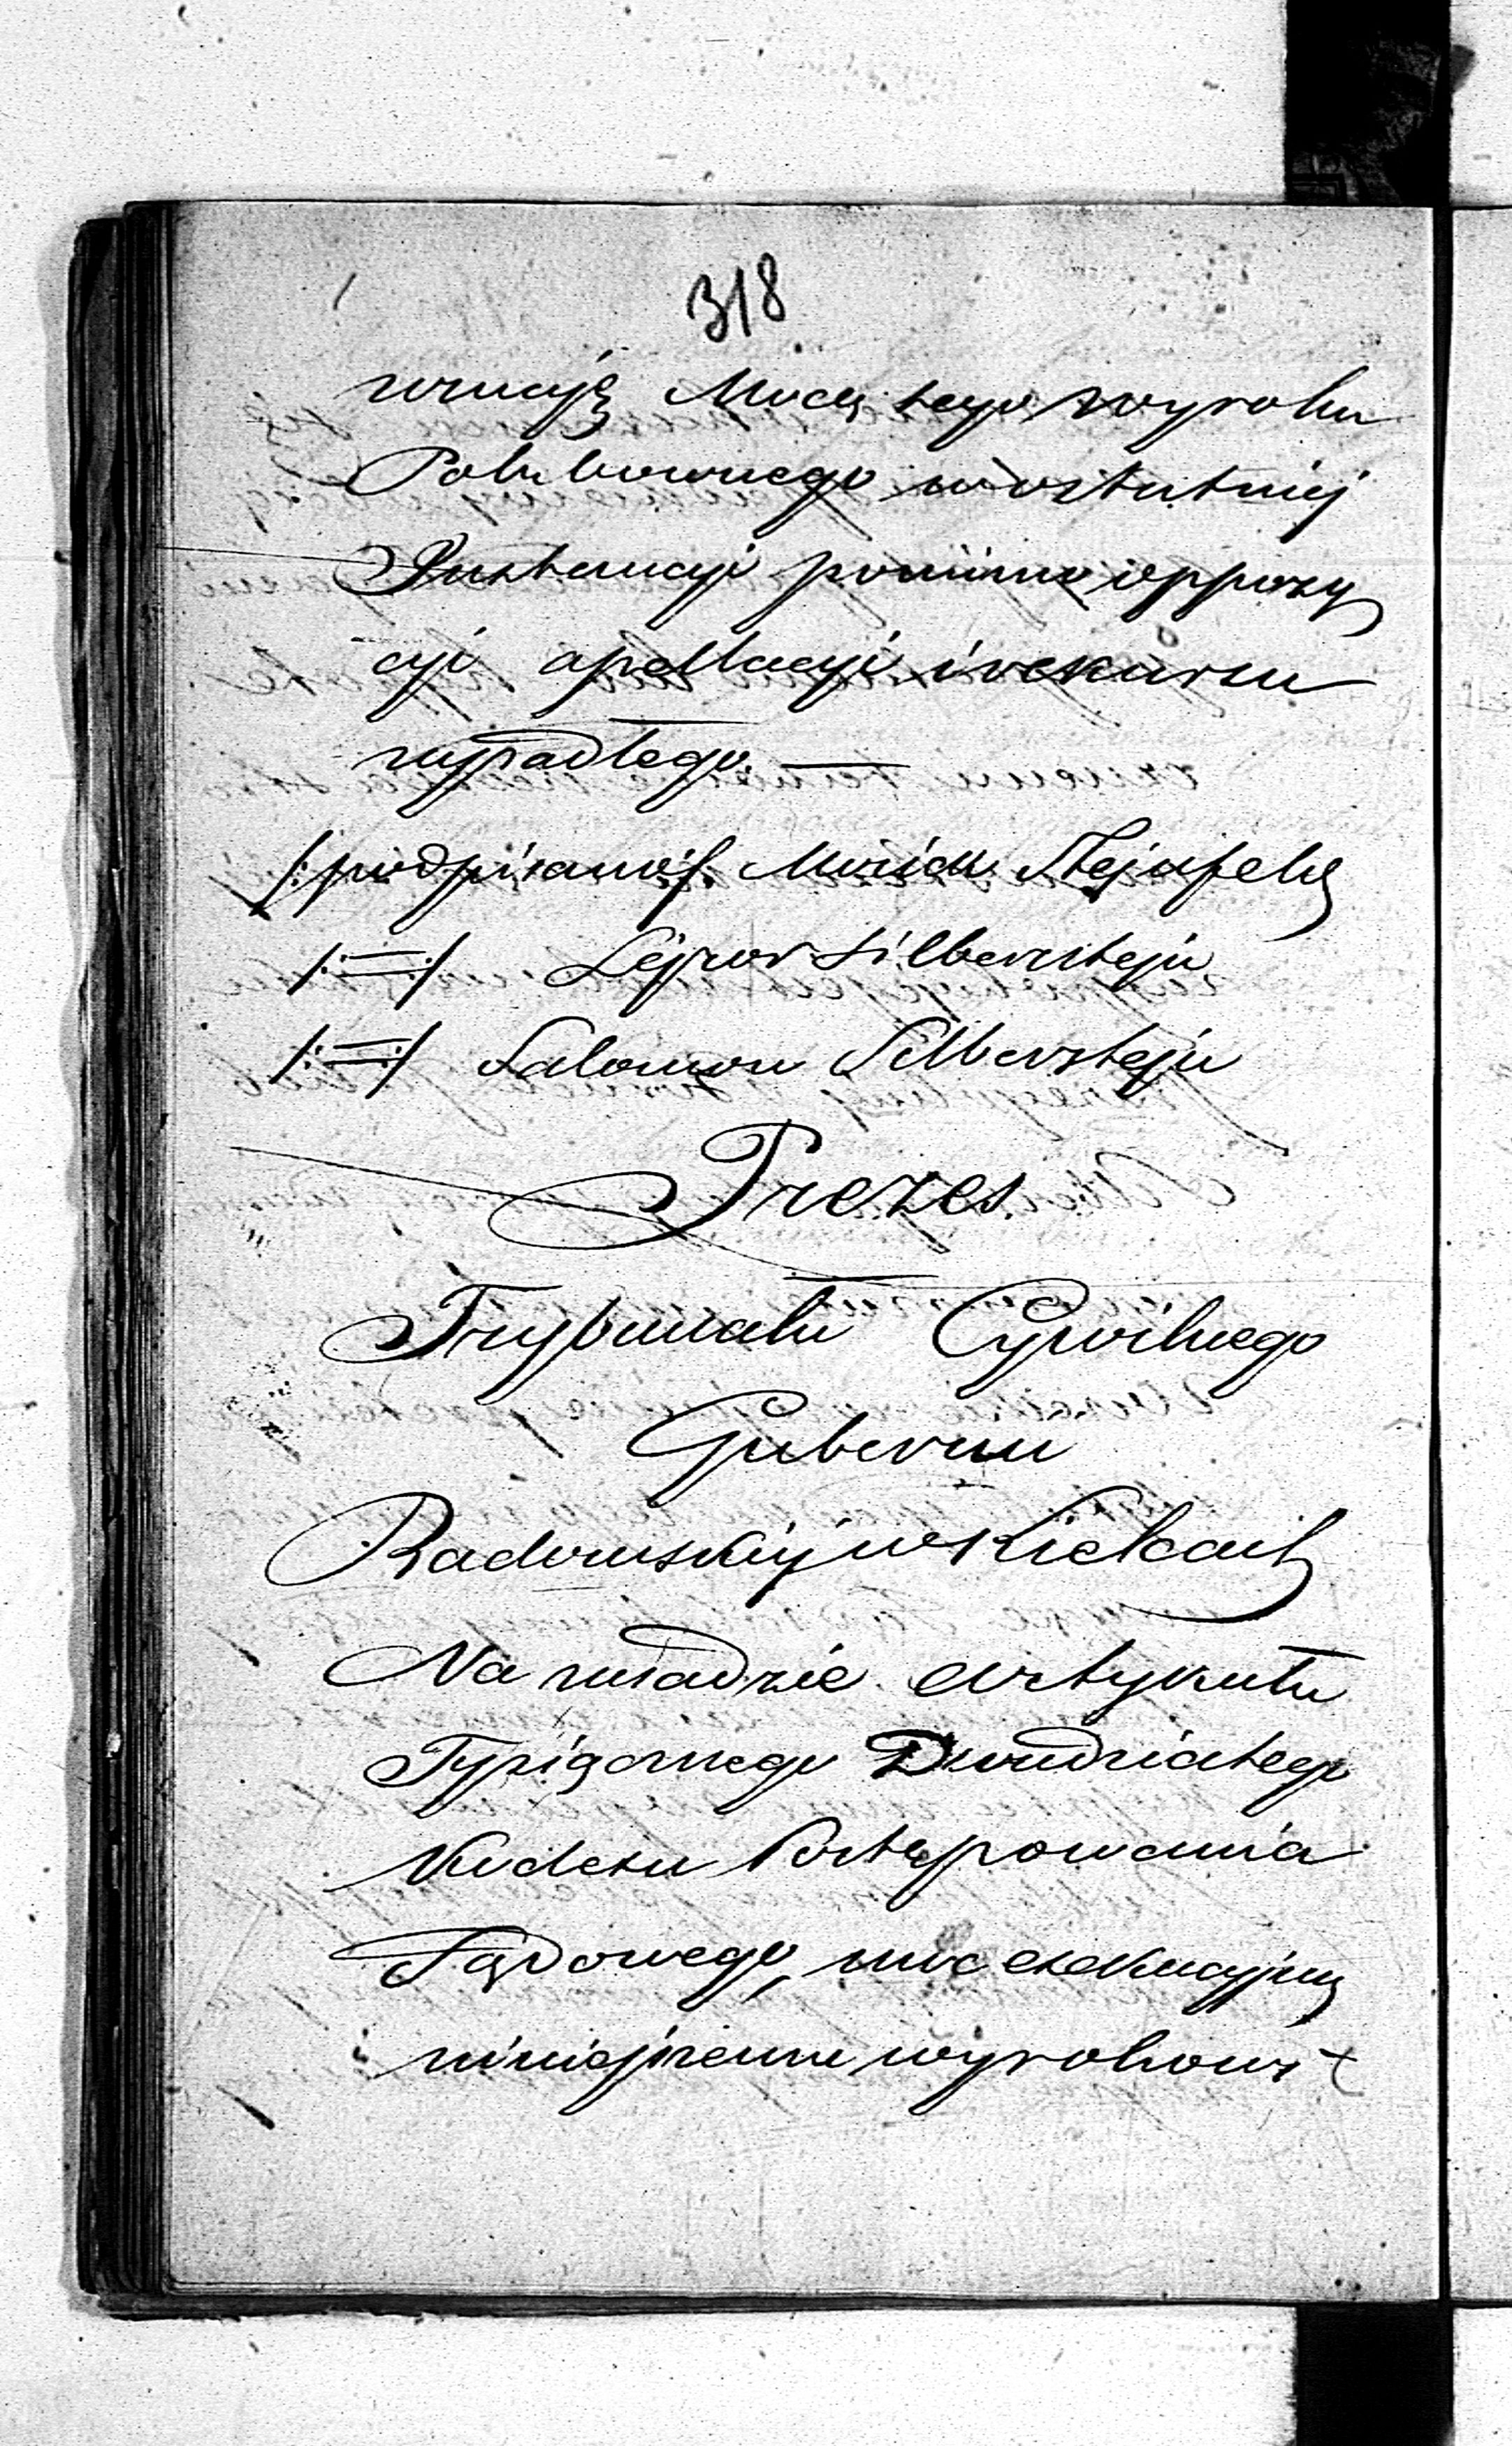 318
wencyję Mocą tego wyroku
Polubownego w ostatniej
Instancyi pomimo oppozy
cyi apellacyi i rekursu
wypadłego. —
/:podpisano:/ Moziek Sztejnfeld
/:=:/ Lejzor Silbersztejn
/:=:/ Salomon Silbersztejn
Prezes
Trybunału Cywilnego
Gubernii
Radomskiej w Kielcach
Na zasadzie Artykułu
Tysiącznego Dwudziestego
Kodexu Postępowania
Sądowego, moc exekucyjną
niniejszemu wyrokowi